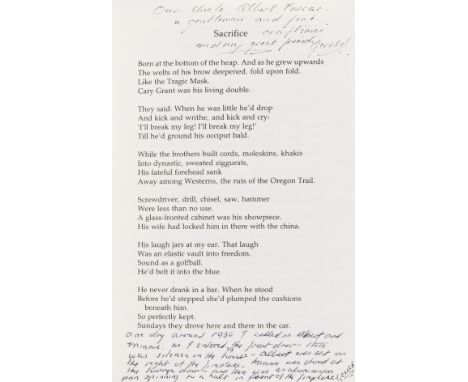 Our Uncle Albert Farrar.
a gentleman and fine
Sacrifice craftsman
and my great friend
Gerald
Born at the bottom of the heap. And as he grew upwards
The welts of his brow deepened, fold upon fold.
Like the Tragic Mask.
Cary Grant was his living double.
They said: When he was little he'd drop
And kick and writhe, and kick and cry:
'I'll break my leg! I'll break my leg!'
Till he'd ground his occiput bald.
While the brothers built cords, moleskins, khakis
Into dynastic, sweated ziggurats,
His fateful forehead sank
Away among Westerns, the ruts of the Oregon Trail.
Screwdriver, drill, chisel, saw, hammer
Were less than no use.
A glass-fronted cabinet was his showpiece.
His wife had locked him in there with the china.
His laugh jars at my ear. That laugh
Was an elastic vault into freedom.
Sound as a golfball.
He'd belt it into the blue.
He never drank in a bar. When he stood
Before he'd stepped she'd plumped the cushions
beneath him.
So perfectly kept.
Sundays they drove here and there in the car.
One day around 1936 I called on Albert and
Minnie, as I entered the front door there
was silence in the house - Albert was sat on
the right of the fireplace, Minnie was stood at
the and there was an aluminium
pan spinning in a in front of the fireplace